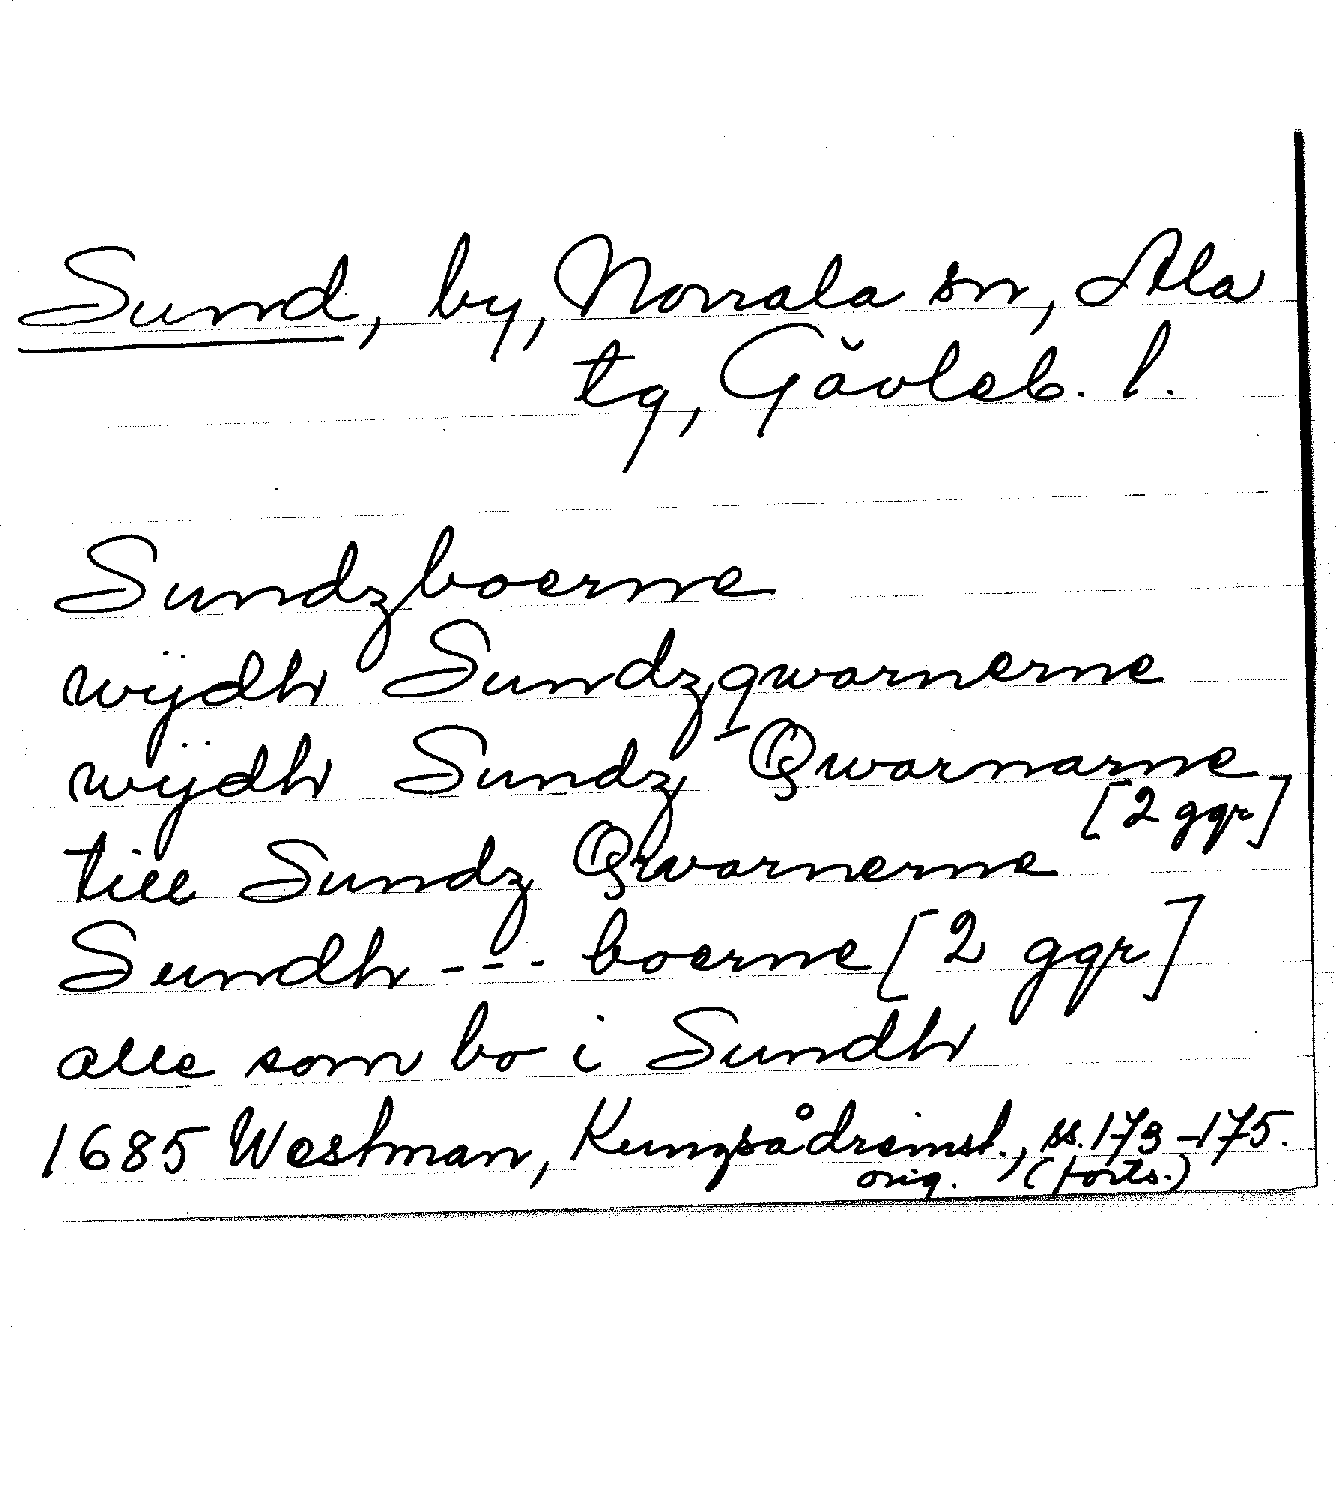 Sund, by, Norrala sn, Ala
tg, Gävleb. l.
Sundzboerne
wÿdh Sundzqwarnerne
wÿdh Sundz Qwarnarne
[2 ggr]
till Sundz Qwarnerne
Sundh --- boerne [2 ggr]
alle som bo i Sundh
1685 Westman, Kungsådremsl., ss. 173-175.
orig. (forts.)